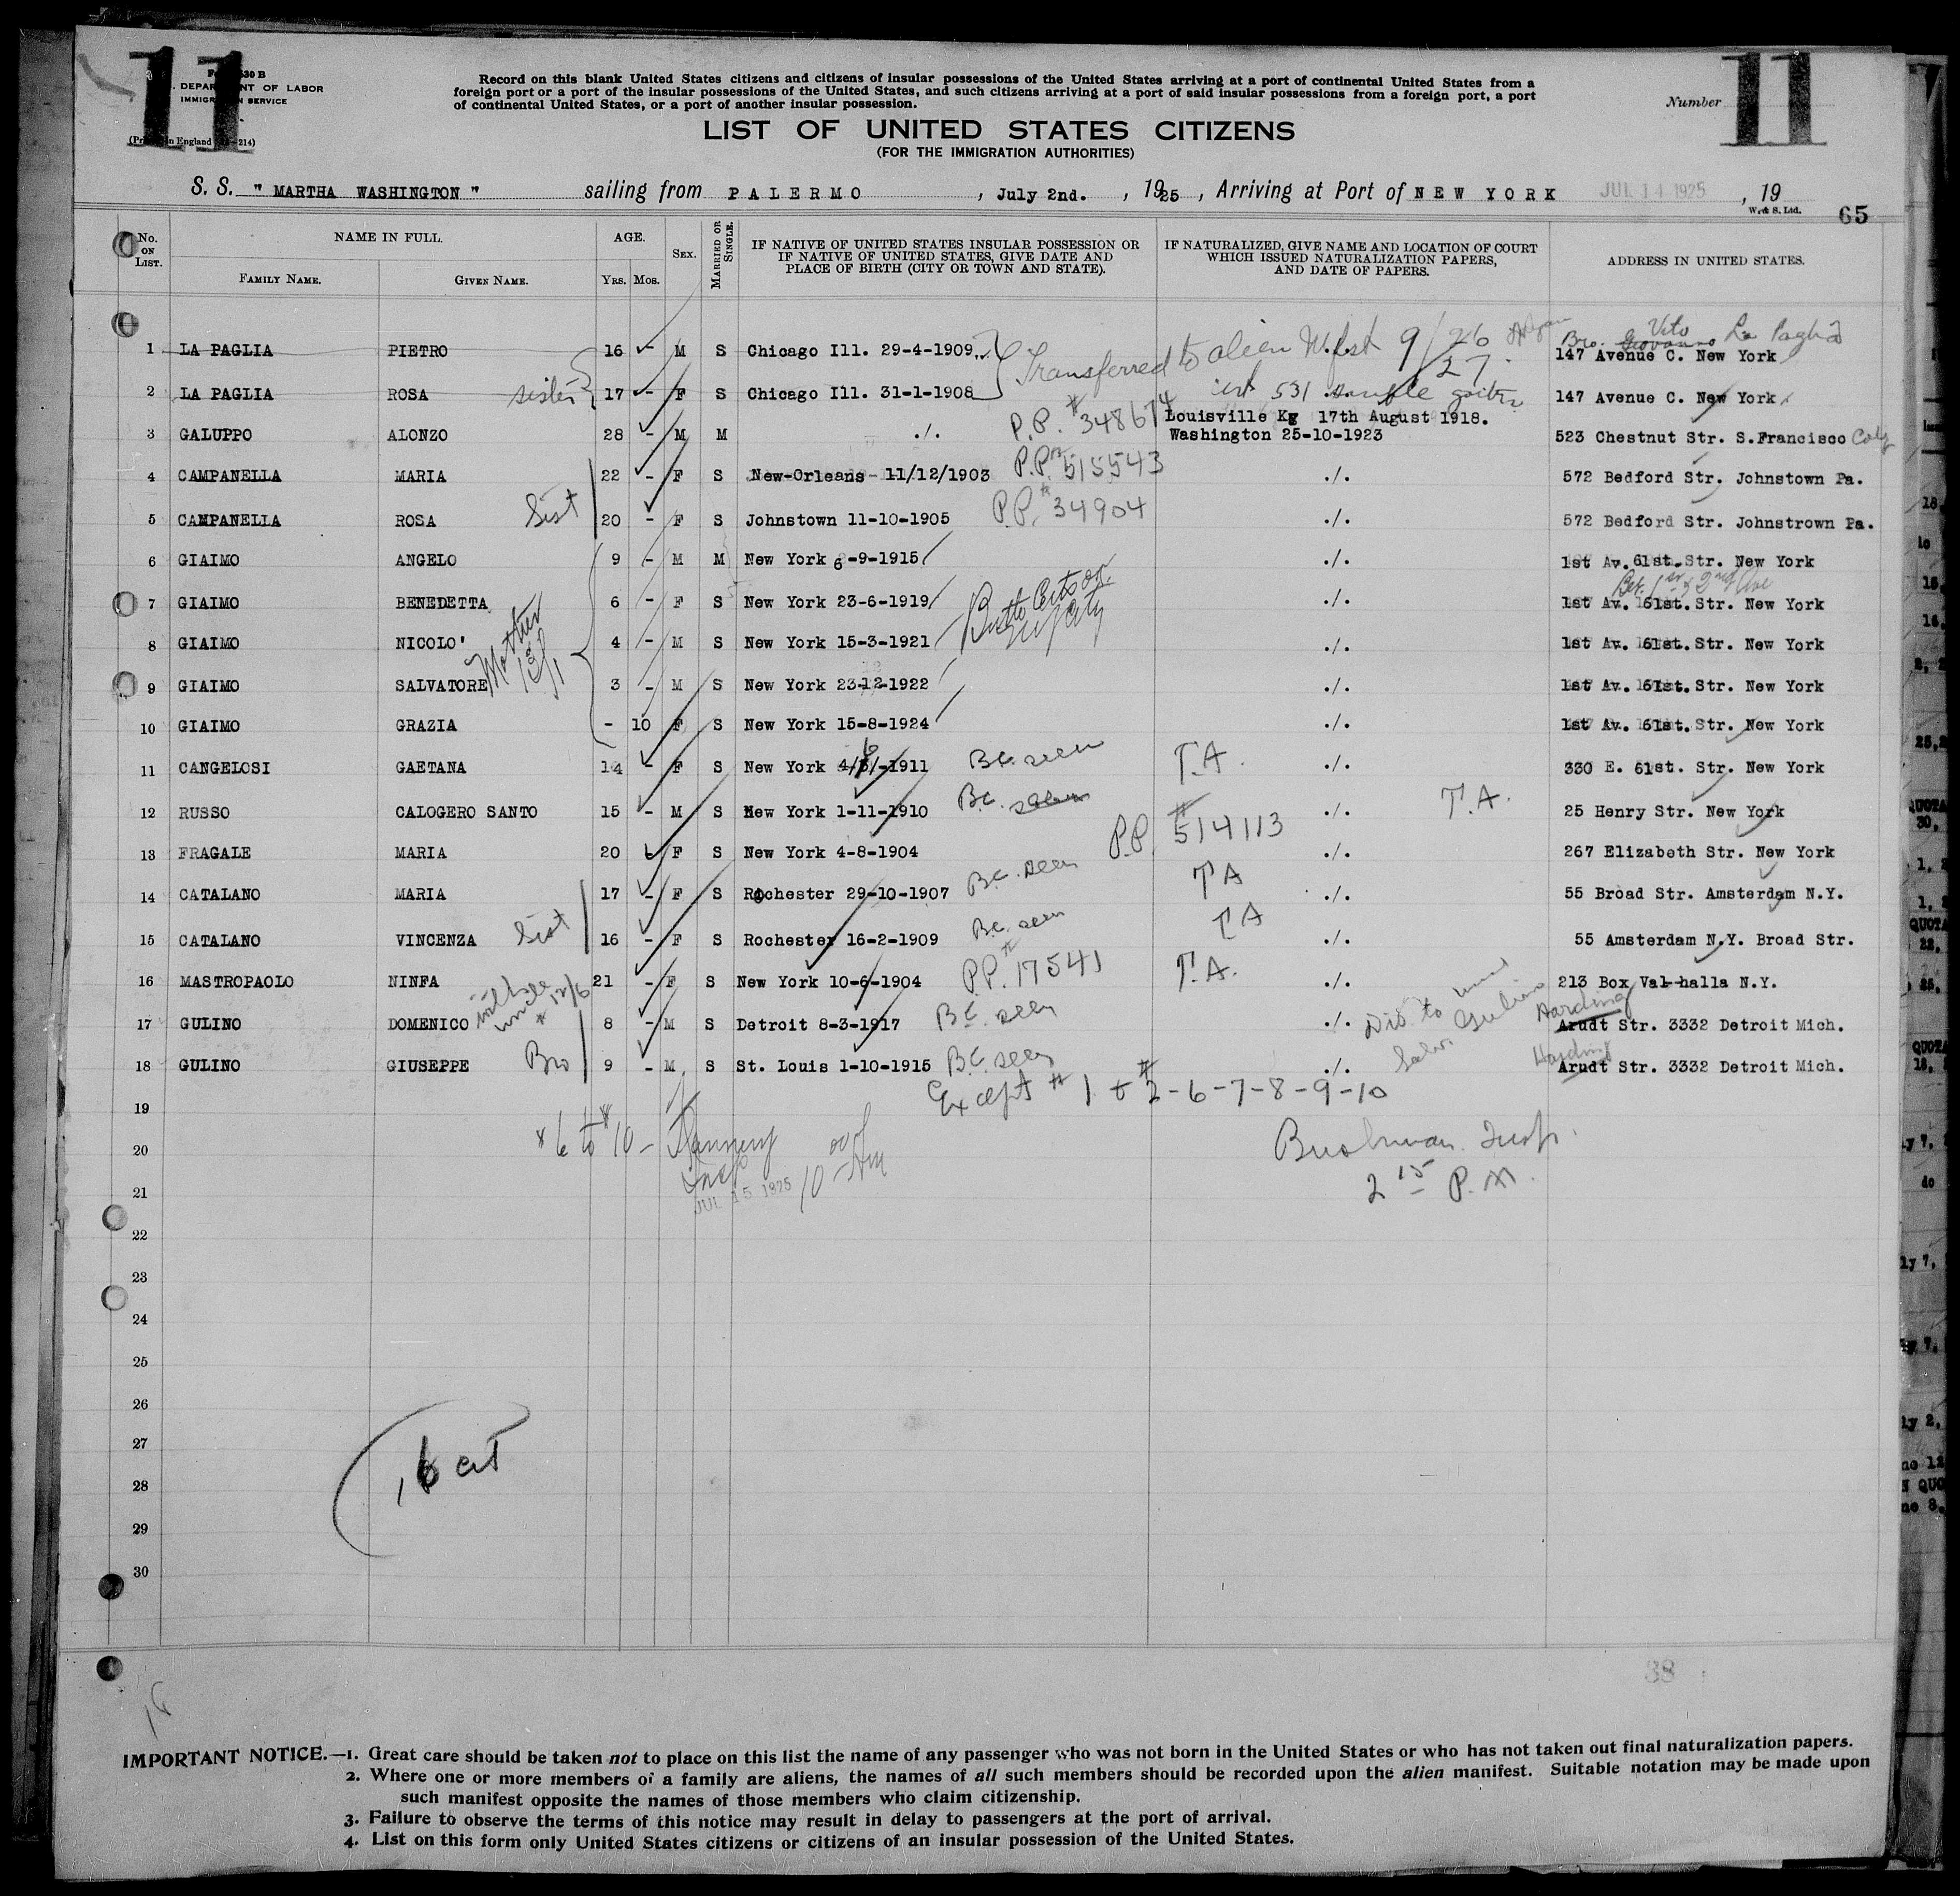 11
11
Record on this blank United States citizens and citizens of insular possessions of the United States arriving at a port of continental United States from a
foreign port or a port of the insular possessions of the United States, and such citizens arriving at a port of said insular possessions from a foreign port, a port
of continental United States, or a port of another insular possession.
30 B
DEPARTMENT OF LABOR
IMMIGRATION SERVICE
in England 214)
Number
LIST OF UNITED STATES CITIZENS
(FOR THE IMMIGRATION AUTHORITIES)
S. S. " MARTHA WASHINGTON " sailing from PALERMO , July 2nd. , 1925 , Arriving at Port of NEW YORK JUL 14 1925 , 19
W. & S. Ltd. 65
No. ON LIST. NAME IN FULL. AGE. SEX. MARRIED OR SINGLE. IF NATIVE OF UNITED STATES INSULAR POSSESSION OR IF NATIVE OF UNITED STATES, GIVE DATE AND PLACE OF BIRTH (CITY OR TOWN AND STATE). IF NATURALIZED, GIVE NAME AND LOCATION OF COURT WHICH ISSUED NATURALIZATION PAPERS, AND DATE OF PAPERS. ADDRESS IN UNITED STATES.
FAMILY NAME. GIVEN NAME. YRS. MOS.
Bro. Giovanno Vito La Paglia
1 LA PAGLIA PIETRO 16 - M S Chicago Ill. 29-4-1909 147 Avenue C. New York
Transferred to alien Mfst 9/26 27
2 LA PAGLIA ROSA sister 17 - F S Chicago Ill. 31-1-1908 cert 531 simple goitre 147 Avenue C. New York
3 GALUPPO ALONZO 28 - M M ./. P.P. # 348674 Louisville Ky 17th August 1918. Washington 25-10-1923 523 Chestnut Str. S.Francisco
4 CAMPANELLA MARIA 22 - F S New-Orleans 11/12/1903 P.P. 515543 ./. 572 Bedford Str. Johnstown Pa.
5 CAMPANELLA ROSA Sist 20 - F S Johnstown 11-10-1905 P.P. # 34904 ./. 572 Bedford Str. Johnstrown Pa.
6 GIAIMO ANGELO 9 - M M New York 6-9-1915 ./. 1st Av. 61st. Str. New York
Bet. 1st & 2nd Ave
7 GIAIMO BENEDETTA 6 - F S New York 23-6-1919 ./. 1st Av. 61st. Str. New York
8 GIAIMO NICOLO' 4 - M S New York 15-3-1921 ./. 1st Av. 61st. Str. New York
Mother 13/1
9 GIAIMO SALVATORE 3 - M S New York 23-12-1922 ./. 1st Av. 61st. Str. New York
10 GIAIMO GRAZIA - 10 F S New York 15-8-1924 ./. 1st Av. 61st. Str. New York
11 CANGELOSI GAETANA 14 - F S New York 4/6/-1911 B.C. seen T.A. ./. 330 E. 61st. Str. New York
12 RUSSO CALOGERO SANTO 15 - M S New York 1-11-1910 B.C. seen ./. T.A. 25 Henry Str. New York
13 FRAGALE MARIA 20 - F S New York 4-8-1904 P.P. # 514113 ./. 267 Elizabeth Str. New York
14 CATALANO MARIA 17 - F S Rochester 29-10-1907 B.C. seen TA ./. 55 Broad Str. Amsterdam N.Y.
15 CATALANO VINCENZA Sist 16 - F S Rochester 16-2-1909 B.C. seen TA ./. 55 Amsterdam N.Y. Broad Str.
16 MASTROPAOLO NINFA 21 - F S New York 10-6-1904 P.P. # 17541 T.A. ./. 213 Box Val-halla N.Y.
with uncle # 12/6
17 GULINO DOMENICO 8 - M S Detroit 8-3-1917 B.C. seen ./. Dis to uncle Gulino Harding Arudt Str. 3332 Detroit Mich.
18 GULINO GIUSEPPE Bro 9 - M S St. Louis 1-10-1915 B.C. seen ./. Harding Arudt Str. 3332 Detroit Mich.
19 Except # 1 & # 2-6-7-8-9-10
20 # 6 to # 10 - Insp 10 00 AM Bushman Insp.
21 JUL 15 1925 2 15 P.M.
22
23
24
25
26
27 16 cit
28
29
30
38
16
IMPORTANT NOTICE.—1. Great care should be taken not to place on this list the name of any passenger who was not born in the United States or who has not taken out final naturalization papers.
2. Where one or more members of a family are aliens, the names of all such members should be recorded upon the alien manifest. Suitable notation may be made upon
such manifest opposite the names of those members who claim citizenship.
3. Failure to observe the terms of this notice may result in delay to passengers at the port of arrival.
4. List on this form only United States citizens or citizens of an insular possession of the United States.